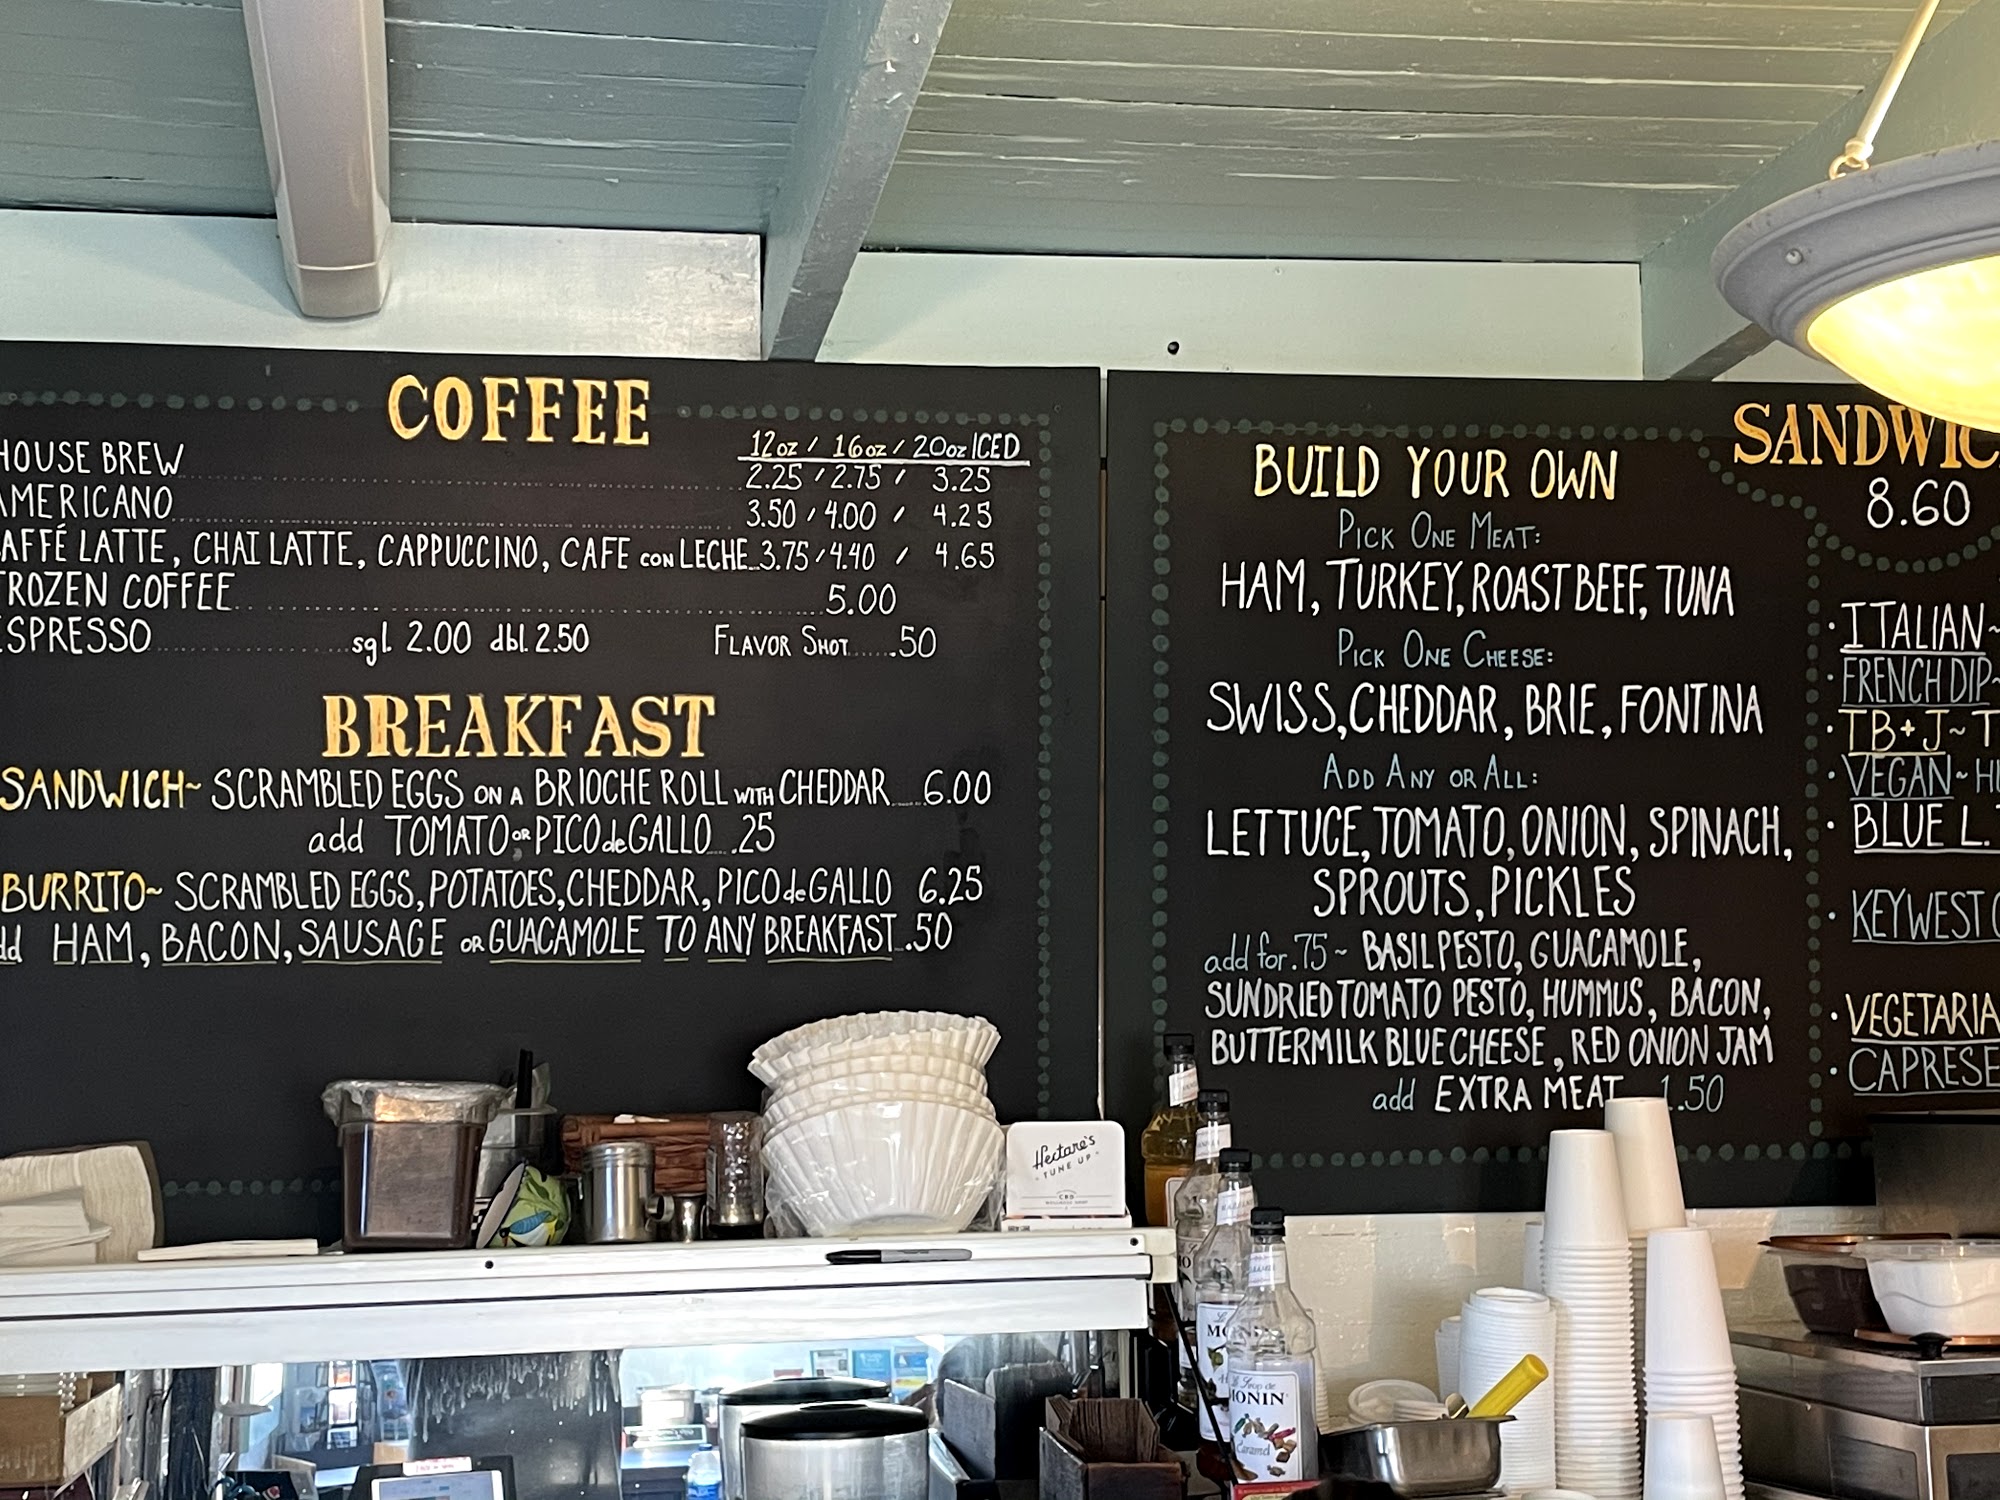 COFFEE
12oz / 16oz / 20oz ICED
HOUSE BREW 2.25 / 2.75 / 3.25
AMERICANO 3.50 / 4.00 / 4.25
AFFÉ LATTE, CHAI LATTE, CAPPUCCINO, CAFE con LECHE 3.75 / 4.40 / 4.65
ROZEN COFFEE 5.00
ESPRESSO sgl. 2.00 dbl. 2.50 FLAVOR SHOT .50
BREAKFAST
SANDWICH~ SCRAMBLED EGGS ON A BRIOCHE ROLL WITH CHEDDAR 6.00
add TOMATO OR PICO de GALLO .25
BURRITO~ SCRAMBLED EGGS, POTATOES, CHEDDAR, PICO de GALLO 6.25
dd HAM, BACON, SAUSAGE OR GUACAMOLE TO ANY BREAKFAST .50
BUILD YOUR OWN
PICK ONE MEAT:
HAM, TURKEY, ROAST BEEF, TUNA
PICK ONE CHEESE:
SWISS, CHEDDAR, BRIE, FONTINA
ADD ANY OR ALL:
LETTUCE, TOMATO, ONION, SPINACH,
SPROUTS, PICKLES
add for .75 ~ BASIL PESTO, GUACAMOLE,
SUNDRIED TOMATO PESTO, HUMMUS, BACON,
BUTTERMILK BLUE CHEESE, RED ONION JAM
add EXTRA MEAT 1.50
SANDWIC
8.60
· ITALIAN~
· FRENCH DIP~
· TB+J~ T
· VEGAN~ HU
· BLUE L.
· KEY WEST C
· VEGETARIA
· CAPRESE
Hectare's
TUNE UP
CBD
MONIN
Caramel